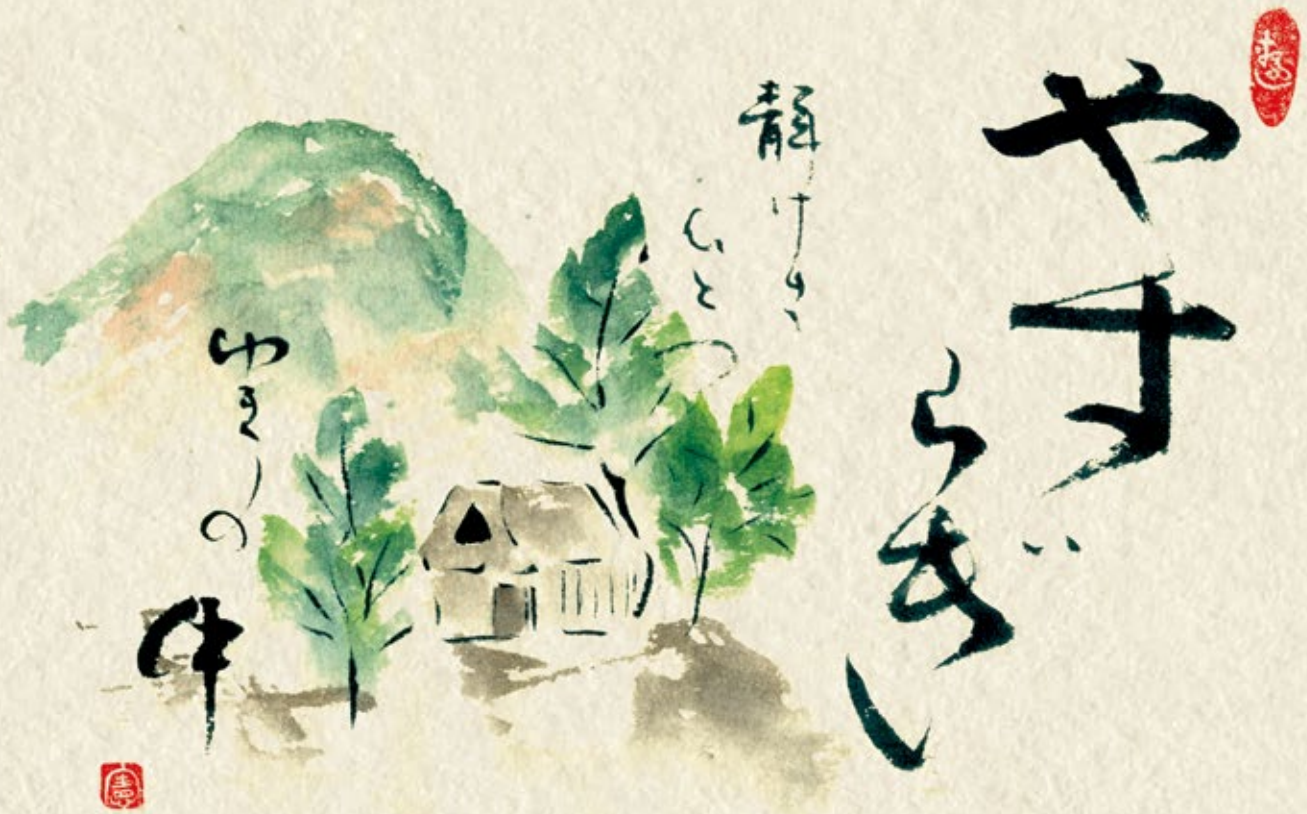 やすらぎ
静けさ
ひとつ
の
中